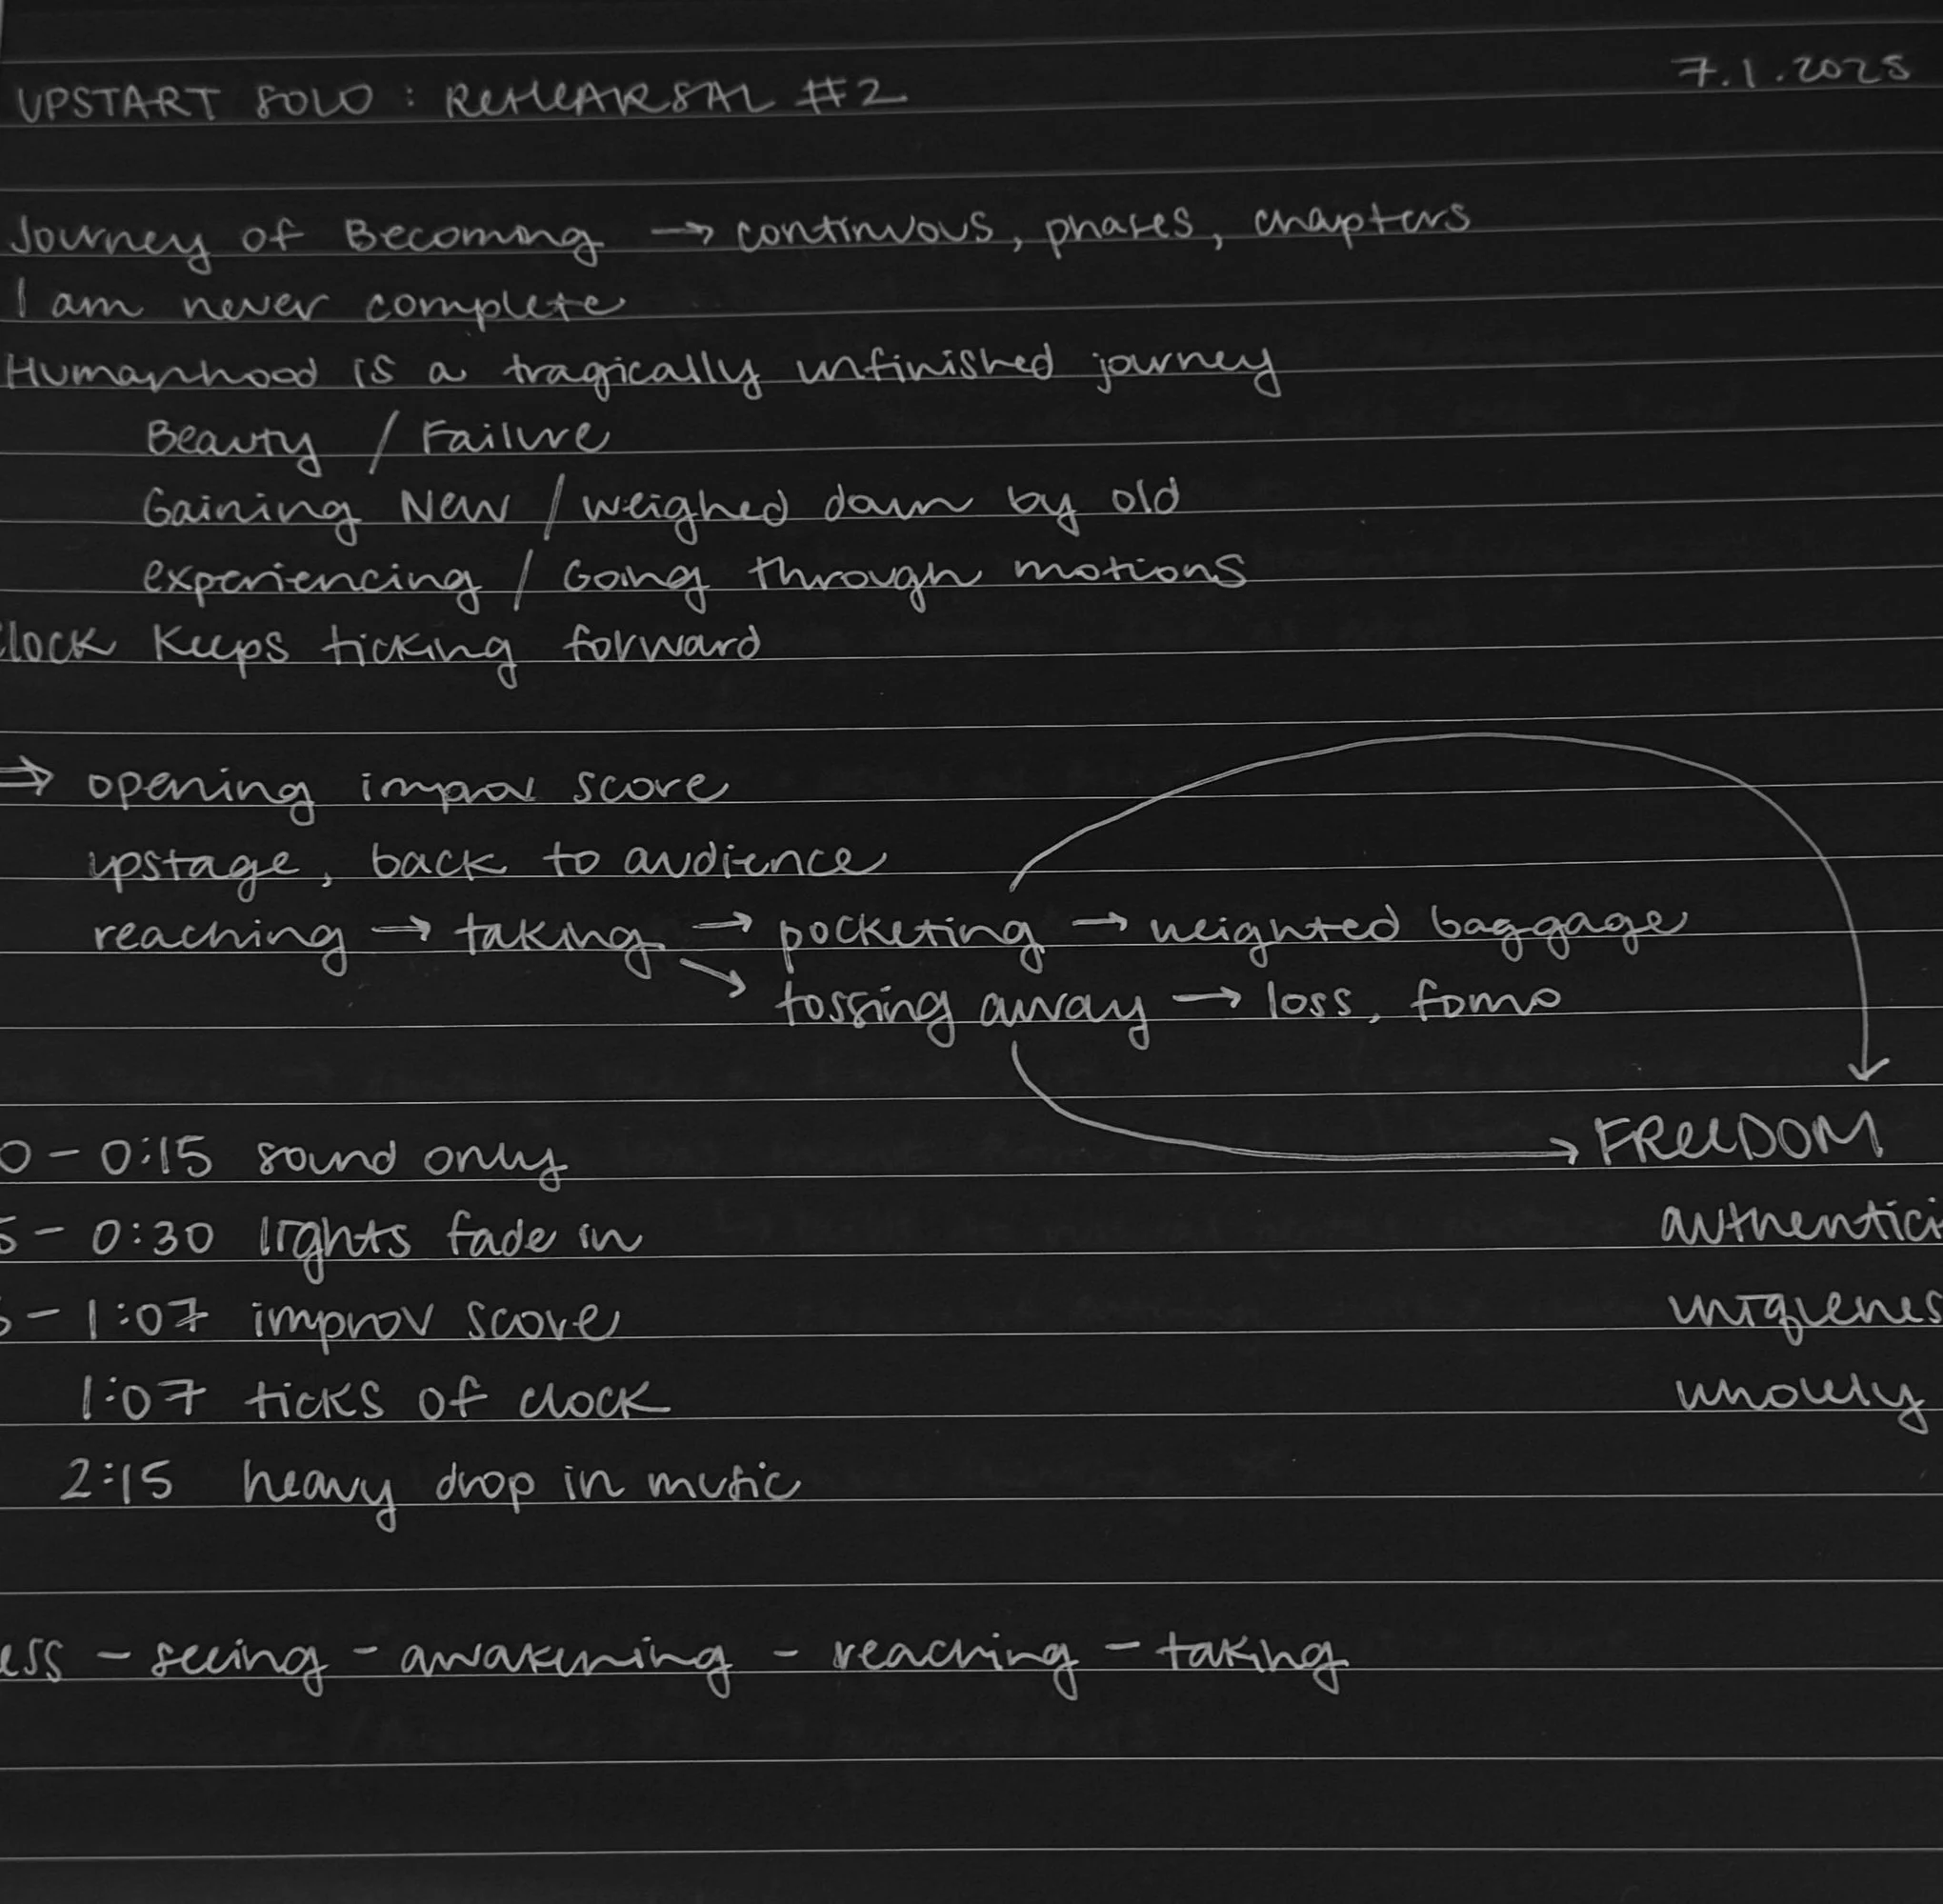 UPSTART SOLO : REHEARSAL #2
7.1.2025
Journey of Becoming → continuous, phases, chapters
I am never complete
Humanhood is a tragically unfinished journey
Beauty / Failure
Gaining New / weighed down by old
experiencing / Going through motions
lock keeps ticking forward
⇒ opening improv score
upstage, back to audience
reaching → taking → pocketing → weighted baggage
↘ tossing away → loss, fomo
→ FREEDOM
authentici
uniquenes
wholely
0 - 0:15 sound only
5 - 0:30 lights fade in
- 1:07 improv score
1:07 ticks of clock
2:15 heavy drop in music
ess - seeing - awakening - reaching - taking